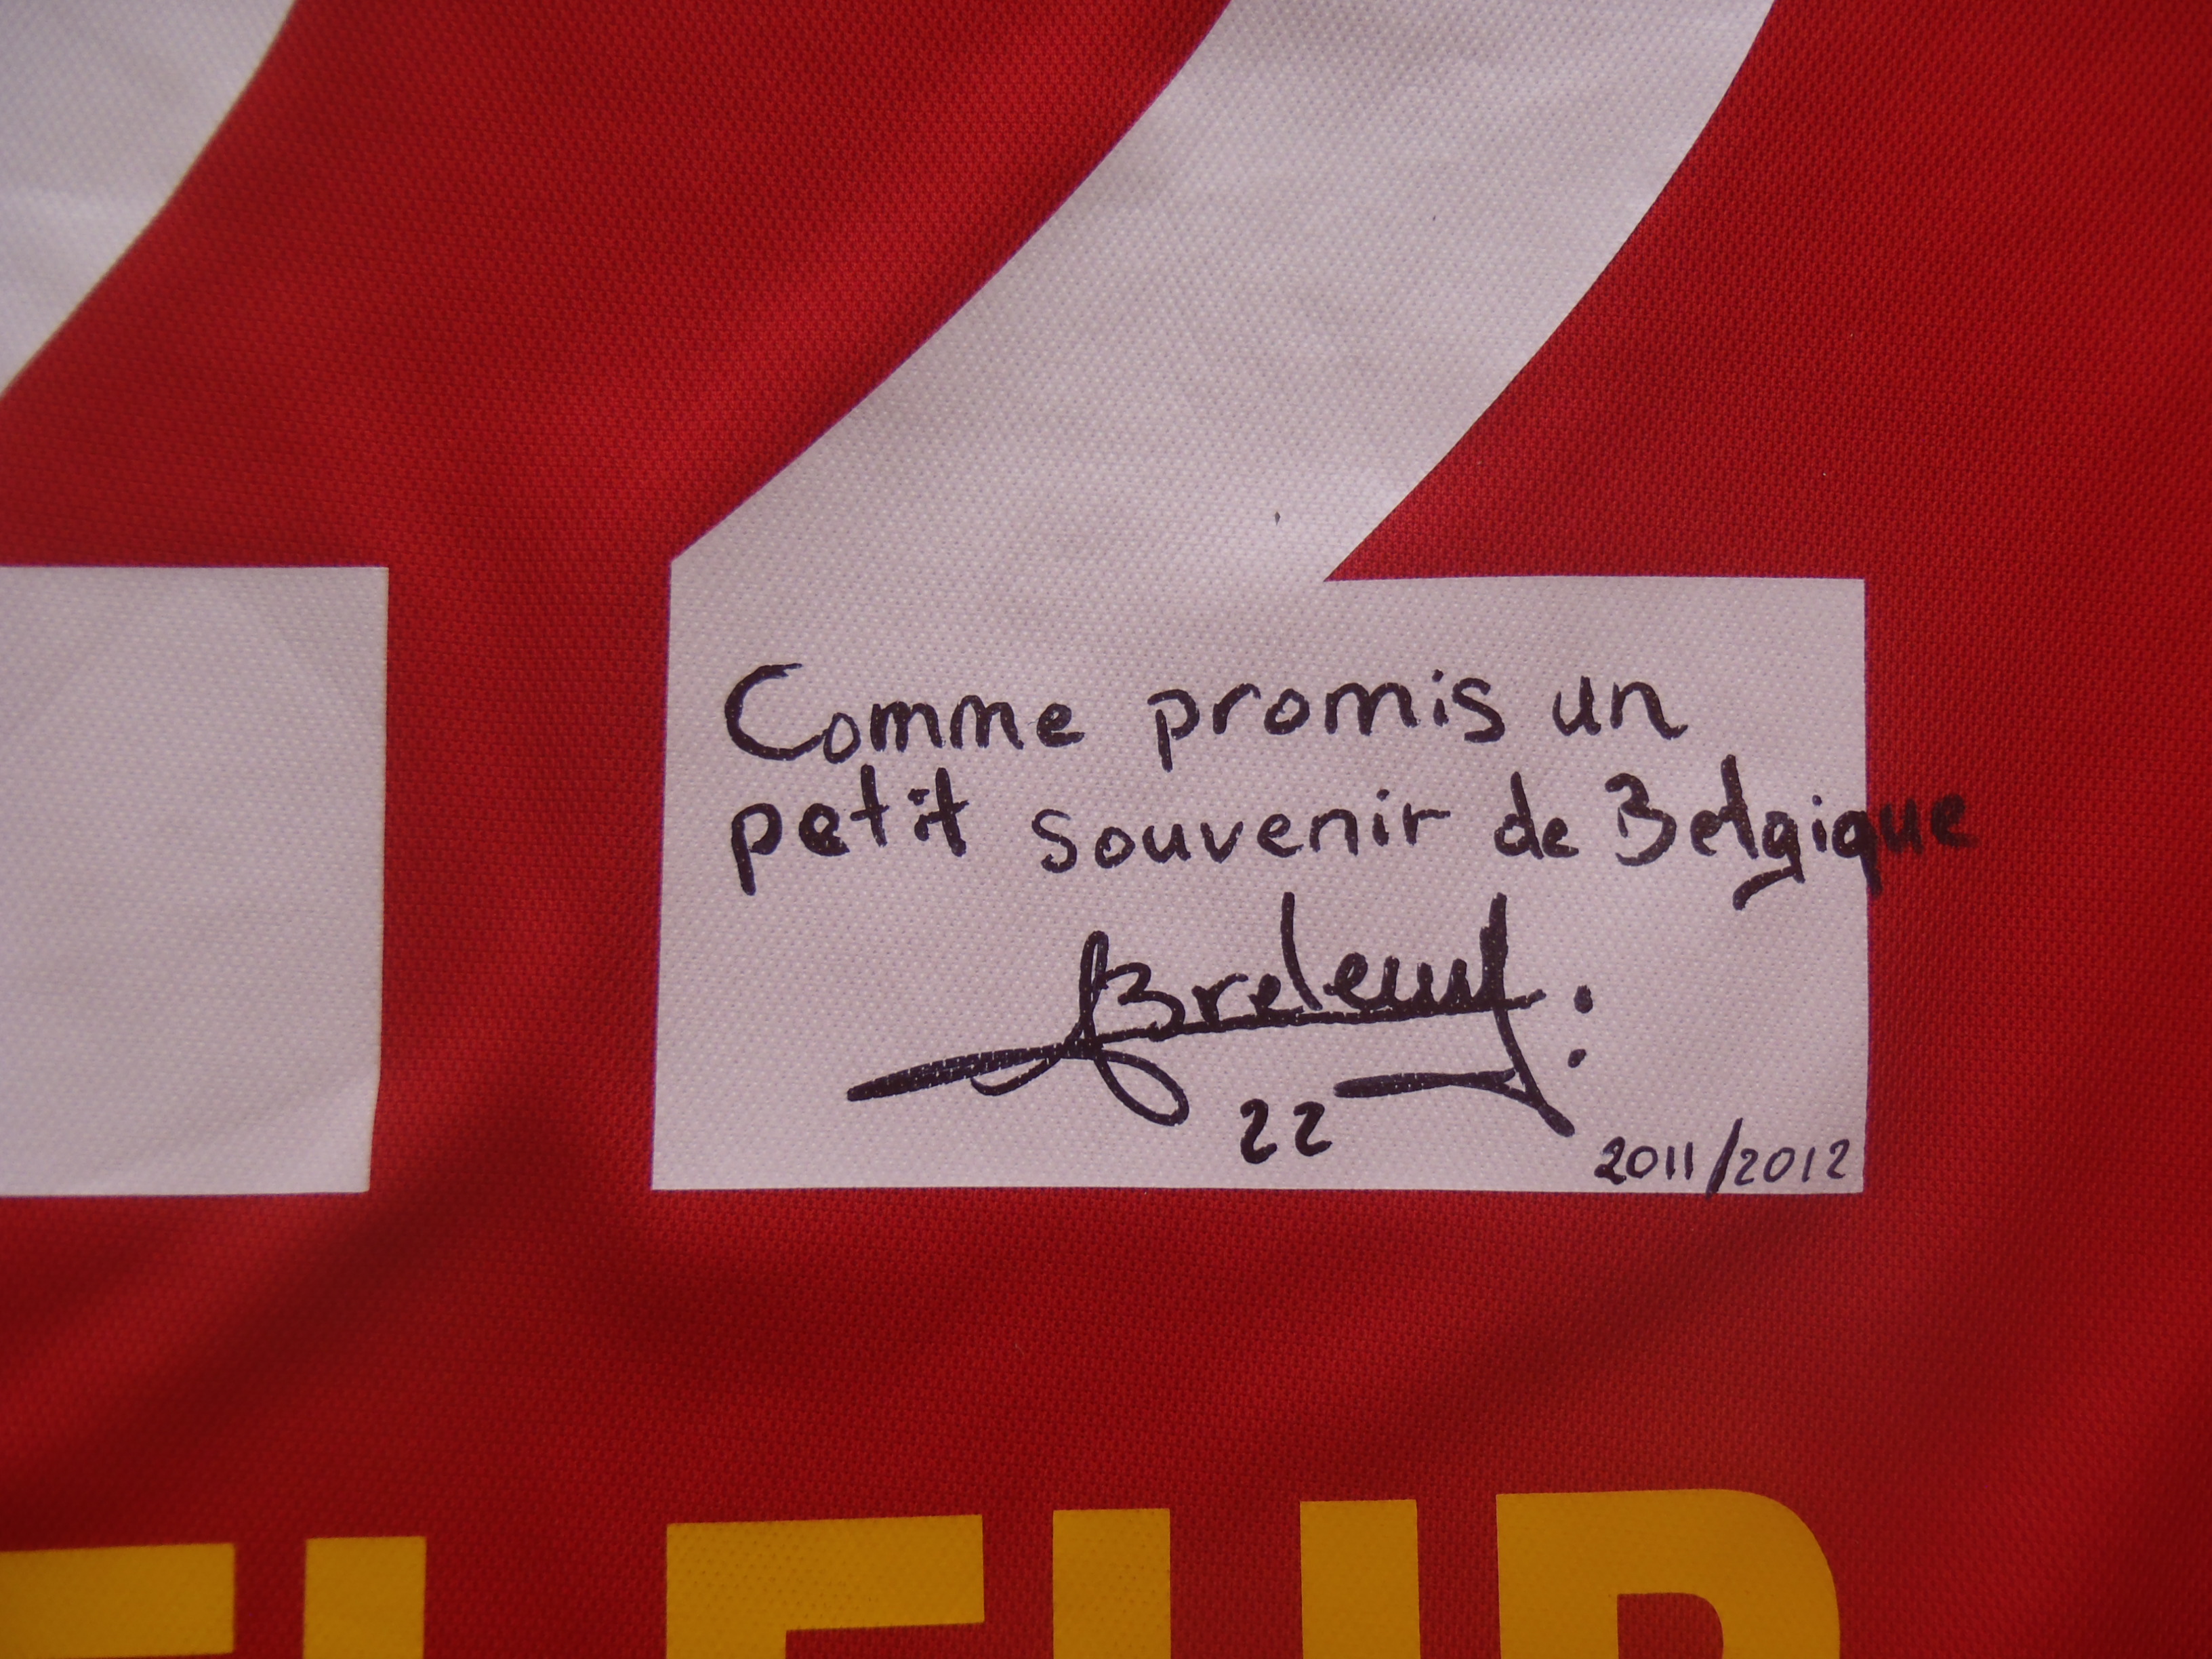 22
Comme promis un
petit souvenir de Belgique
Breleur
22
2011/2012
ELEUR